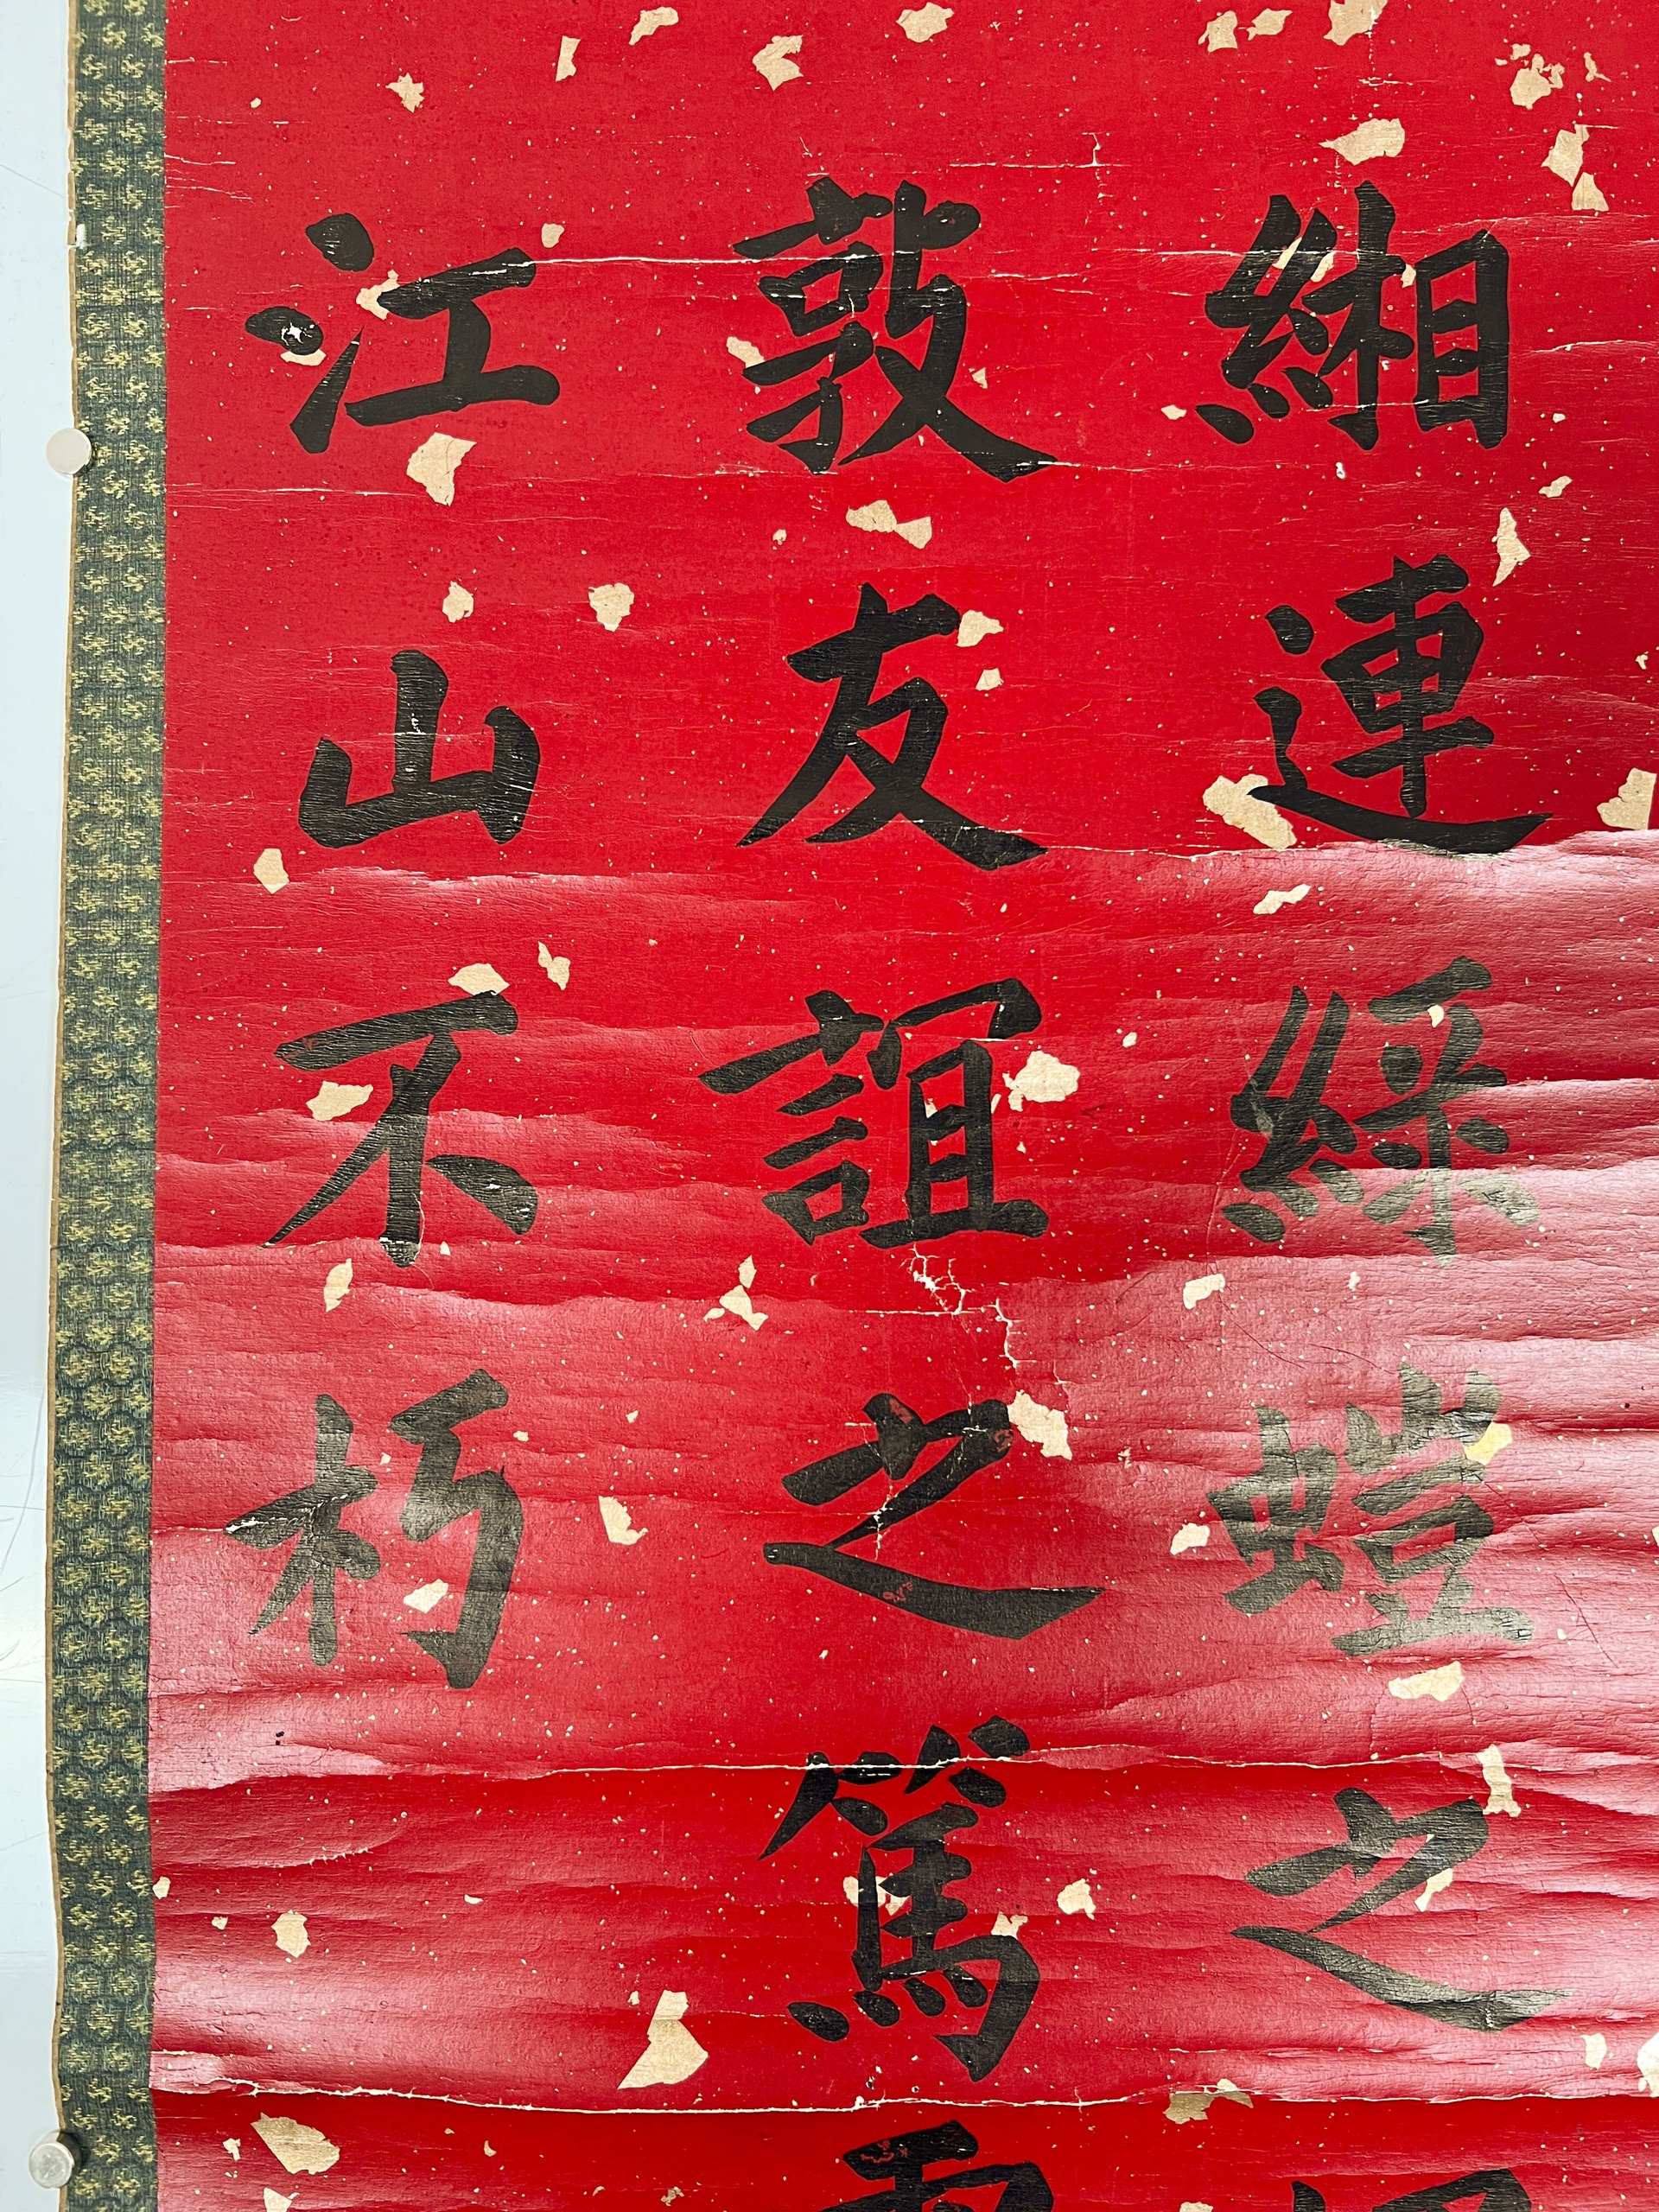 緗連綵螘之
敦友誼之篤
江山不朽